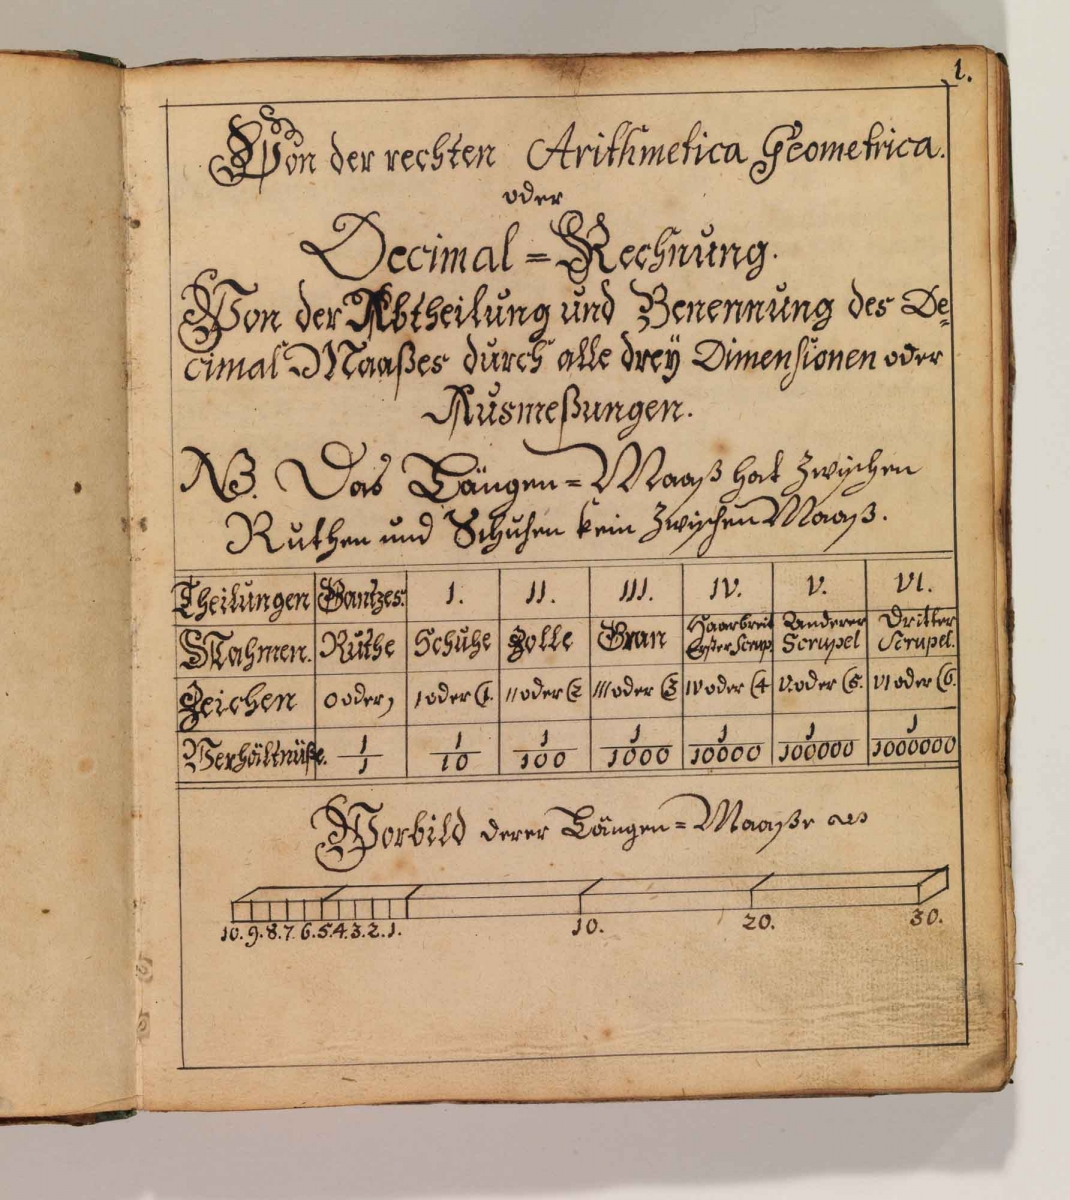 1.
Von der rechten Arithmetica Geometrica.
oder
Decimal = Rechnung.
Von der Abtheilung und Benennung des De-
cimal Maaßes durch alle drey Dimensionen oder
Ausmeßungen.
NB. Das Längen = Maaß hat zwischen
Ruthen und Schuhen kein zwischen Maaß.
Theilungen Gantzes. I. II. III. IV. V. VI.
Nahmen. Ruthe Schuhe Zolle Gran Haarbreit Erster Scrup. Anderer Scrupel Dritter Scrupel.
Zeichen 0 oder, I oder (1. II oder (2 III oder (3 IV oder (4 V. oder (5. VI oder (6.
Verhältnüße. 1/1 1/10 1/100 1/1000 1/10000 1/100000 1/1000000
Vorbild derer Längen = Maaße als
10. 9. 8. 7. 6. 5. 4. 3. 2. 1. 10. 20. 30.